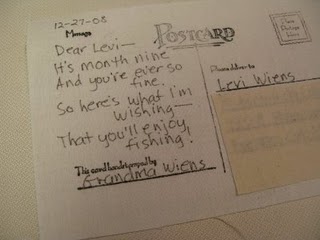 12-27-08
Message
POSTCARD
Place
Postage
Here
Dear Levi—
It's month nine
And you're ever so
fine.
So here's what I'm
wishing—
That you'll enjoy
fishing!
This card handstamped by
Grandma Wiens
Please deliver to
Levi Wiens